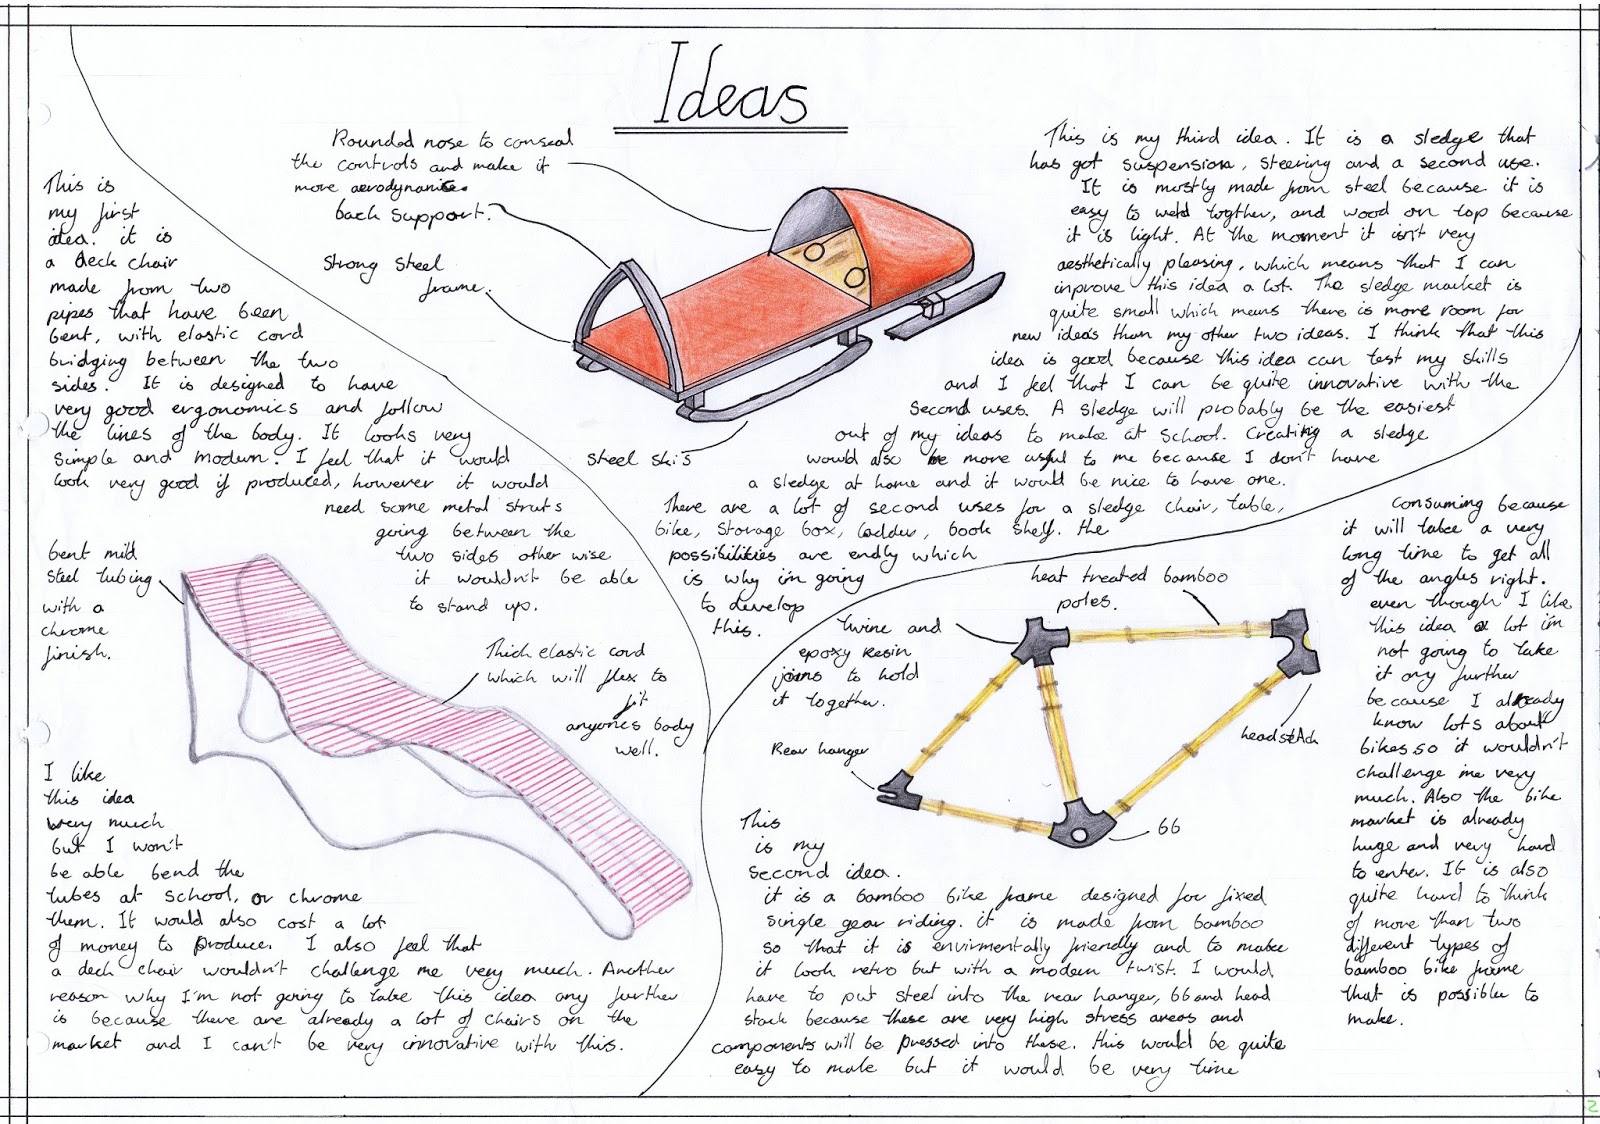 Ideas
This is
my first
idea. it is
a deck chair
made from two
pipes that have been
bent, with elastic cord
bridging between the two
sides. It is designed to have
very good ergonomics and follow
the lines of the body. It looks very
simple and modern. I feel that it would
look very good if produced, however it would
need some metal struts
going between the
two sides other wise
it wouldn't be able
to stand up.
bent mild
steel tubing
with a
chrome
finish.
Thick elastic cord
which will flex to
fit
anyones body
well.
I like
this idea
very much
but I won't
be able bend the
tubes at school, or chrome
them. It would also cost a lot
of money to produce. I also feel that
a deck chair wouldn't challenge me very much. Another
reason why I'm not going to take this idea any further
is because there are already a lot of chairs on the
market and I can't be very innovative with this.
Rounded nose to conseal
the controls and make it
more aerodynamic.
back support.
Strong steel
frame.
steel skis
This is my third idea. It is a sledge that
has got suspension, steering and a second use.
It is mostly made from steel because it is
easy to weld togther, and wood on top because
it is light. At the moment it isn't very
aesthetically pleasing, which means that I can
inprove this idea a lot. The sledge market is
quite small which means there is more room for
new ideas than my other two ideas. I think that this
idea is good because this idea can test my skills
and I feel that I can be quite innovative with the
second uses. A sledge will probably be the easiest
out of my ideas to make at school. Creating a sledge
would also be more useful to me because I don't have
a sledge at home and it would be nice to have one.
There are a lot of second uses for a sledge chair, table,
bike, storage box, ladder, book shelf. the
possibilities are endly which
is why im going
to develop
this.
heat treated bamboo
poles.
twine and
epoxy resin
joins to hold
it together.
Rear hanger
head stack
66
This
is my
second idea.
it is a bamboo bike frame designed for fixed
single gear riding. it is made from bamboo
so that it is envirmentally friendly and to make
it look retro but with a modern twist. I would
have to put steel into the rear hanger, 66 and head
stack because these are very high stress areas and
components will be pressed into these. this would be quite
easy to make but it would be very time
consuming because
it will take a very
long time to get all
of the angles right.
even though I like
this idea a lot im
not going to take
it any further
because I already
know lots about
bikes so it wouldn't
challenge me very
much. Also the bike
market is already
huge and very hard
to enter. It is also
quite hard to think
of more than two
different types of
bamboo bike frame
that is possible to
make.
2